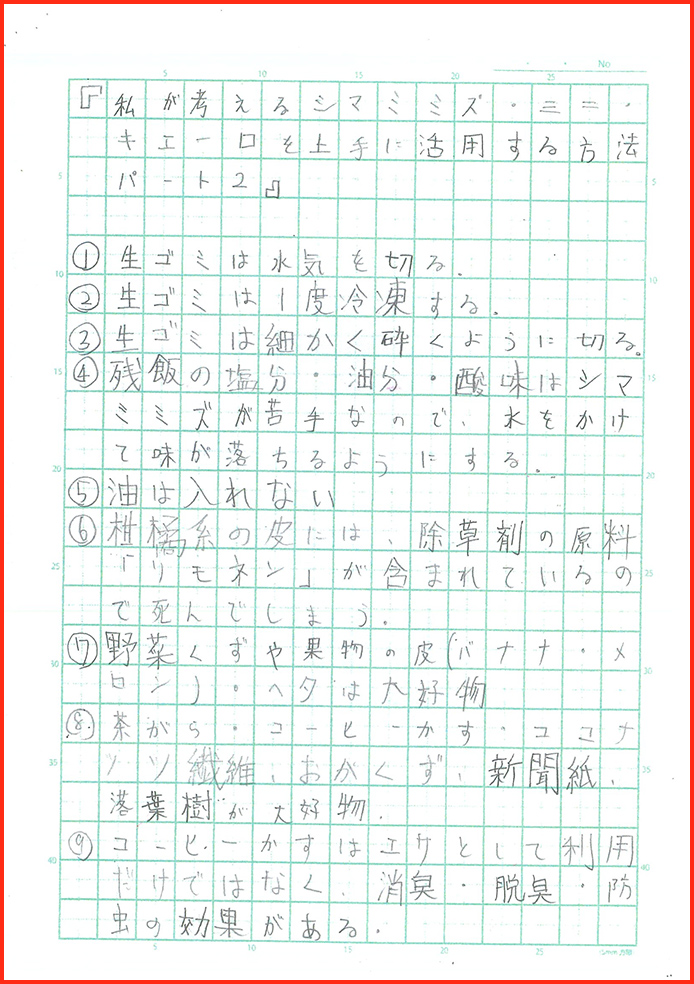 No
5 10 15 20 25
『私が考えるシマミミズ・ミニ・
キエーロを上手に活用する方法
パート2』
①生ゴミは水気を切る。
②生ゴミは1度冷凍する。
③生ゴミは細かく砕くように切る。
④残飯の塩分・油分・酸味はシマ
ミミズが苦手なので、水をかけ
て味が落ちるようにする。
⑤油は入れない
⑥柑橘系の皮には、除草剤の原料
「リモネン」が含まれているの
で死んでしまう。
⑦野菜くずや果物の皮(バナナ・メ
ロン)・ヘタは大好物
⑧茶がら・コーヒーかす・ココナ
ッツ繊維、おがくず、新聞紙、
落葉樹が大好物。
⑨コーヒーかすはエサとして利用
だけではなく、消臭・脱臭・防
虫の効果がある。
5 10 15 20 25